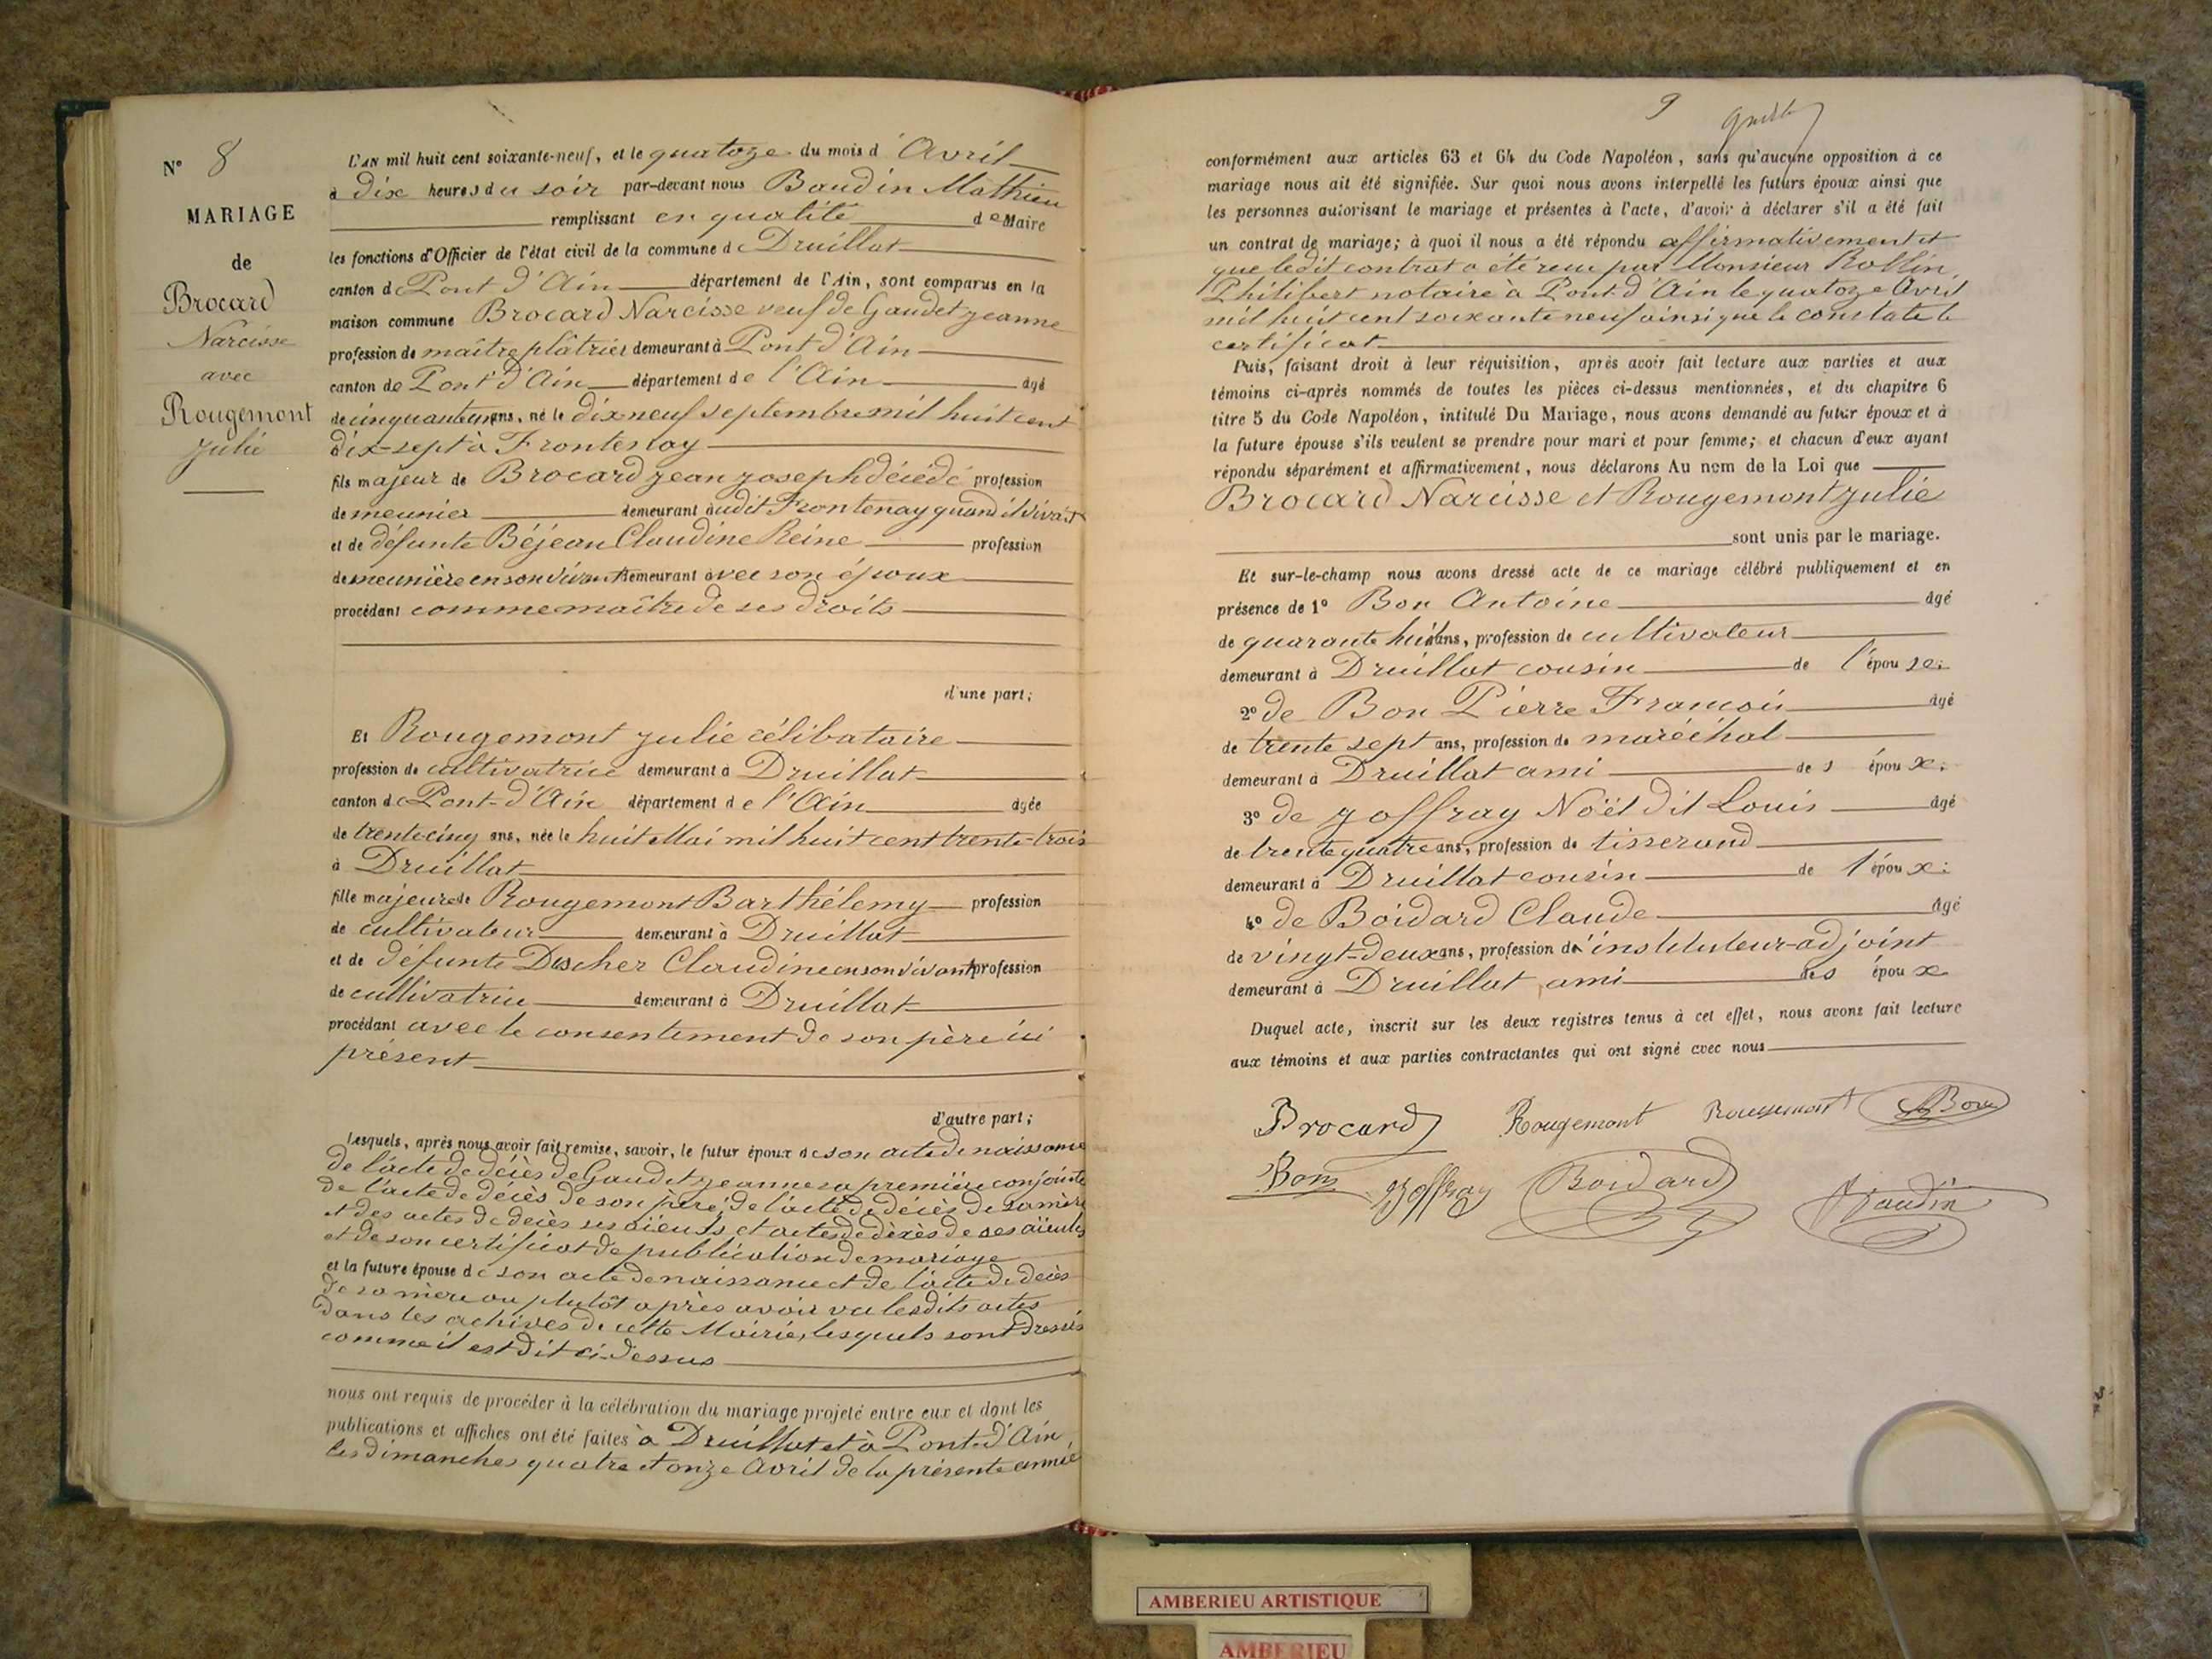 N° 8
MARIAGE
de
Brocard
Narcisse
avec
Rougemont
Julie
L'AN mil huit cent soixante-neuf, et le quatoze du mois d'Avril
à dix heures du soir par-devant nous Baudin Mathieu
remplissant en qualité de Maire
les fonctions d'Officier de l'état civil de la commune de Druillat
canton de Pont d'Ain département de l'Ain, sont comparus en la
maison commune Brocard Narcisse veuf de Gaudet Jeanne
profession de maître plâtrier demeurant à Pont d'Ain
canton de Pont d'Ain département de l'Ain âgé
de cinquante un ans, né le dix neuf septembre mil huit cent
dix-sept à Frontenay
fils majeur de Brocard Jean Joseph décédé profession
de meunier demeurant audit Frontenay quand il vivait
et de défunte Béjean Claudine Reine profession
de meunière en son vivant demeurant avec son époux
procédant comme maître de ses droits
d'une part;
Et Rougemont Julie célibataire
profession de cultivatrice demeurant à Druillat
canton de Pont-d'Ain département de l'Ain âgée
de trente cinq ans, née le huit Mai mil huit cent trente-trois
à Druillat
fille majeure de Rougemont Barthélemy profession
de cultivateur demeurant à Druillat
et de défunte Discher Claudine en son vivant profession
de cultivatrice demeurant à Druillat
procédant avec le consentement de son père ici
présent
d'autre part;
Lesquels, après nous avoir fait remise, savoir, le futur époux de son acte de naissance
de l'acte de décès de Gaudet Jeanne sa première conjointe
de l'acte de décès de son père, de l'acte de décès de sa mère
et des actes de décès ses aïeuls et actes de décès de ses aïeules
et de son certificat de publication de mariage
et la future épouse de son acte de naissance et de l'acte de décès
de sa mère ou plutôt après avoir vu lesdits actes
dans les achives de cette Mairie, lesquels sont dressés
comme il est dit ci-dessus
nous ont requis de procéder à la célébration du mariage projeté entre eux et dont les
publications et affiches ont été faites à Druillat et à Pont-d'Ain,
les dimanches quatre et onze Avril de la présente année
9
conformément aux articles 63 et 64 du Code Napoléon, sans qu'aucune opposition à ce
mariage nous ait été signifiée. Sur quoi nous avons interpellé les futurs époux ainsi que
les personnes autorisant le mariage et présentes à l'acte, d'avoir à déclarer s'il a été fait
un contrat de mariage; à quoi il nous a été répondu affirmativement et
que ledit contrat a été reçu par Monsieur Rollin,
Philibert notaire à Pont-d'Ain le quatoze Avril
mil huit cent soixante neuf ainsi que le constate le
certificat
Puis, faisant droit à leur réquisition, après avoir fait lecture aux parties et aux
témoins ci-après nommés de toutes les pièces ci-dessus mentionnées, et du chapitre 6
titre 5 du Code Napoléon, intitulé Du Mariage, nous avons demandé au futur époux et à
la future épouse s'ils veulent se prendre pour mari et pour femme; et chacun d'eux ayant
répondu séparément et affirmativement, nous déclarons Au nom de la Loi que
Brocard Narcisse et Rougemont Julie
sont unis par le mariage.
Et sur-le-champ nous avons dressé acte de ce mariage célébré publiquement et en
présence de 1° Bon Antoine âgé
de quarante huit ans, profession de cultivateur
demeurant à Druillat cousin de l'épouse;
2° de Bon Pierre François âgé
de trente sept ans, profession de maréchal
demeurant à Druillat ami des époux;
3° de Joffray Noël dit Louis âgé
de trente quatre ans, profession de tisserand
demeurant à Druillat cousin de l'époux;
4° de Boidard Claude âgé
de vingt-deux ans, profession d'instituteur-adjoint
demeurant à Druillat ami des époux
Duquel acte, inscrit sur les deux registres tenus à cet effet, nous avons fait lecture
aux témoins et aux parties contractantes qui ont signé avec nous
Brocard Rougemont Rougemont Bon
Bon Joffray Boidard Baudin
AMBERIEU ARTISTIQUE
AMBERIEU